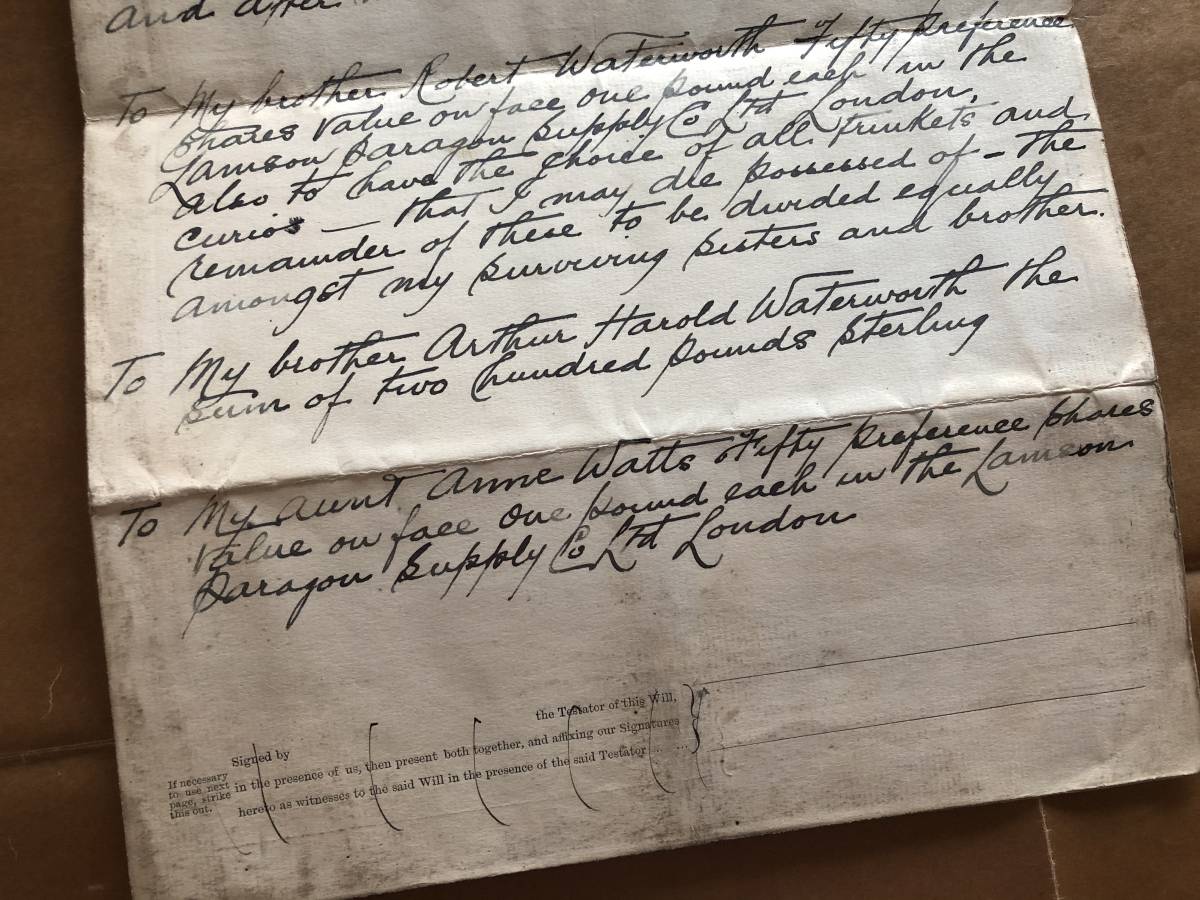 and after
To My brother Robert Waterworth Fifty preference
shares value on face one pound each in the
Lamson Paragon Supply Co Ltd London,
also to have the choice of all trinkets and
curios – that I may die possessed of – the
remainder of these to be divided equally
amongst my surviving sisters and brother.
To My brother Arthur Harold Waterworth the
sum of two hundred pounds sterling
To My aunt Anne Watts Fifty preference shares
value on face one pound each in the Lamson
Paragon Supply Co Ltd London
the Testator of this Will,
Signed by
in the presence of us, then present both together, and affixing our Signatures
hereto as witnesses to the said Will in the presence of the said Testator ... ...
If necessary
to use next
page, strike
this out.